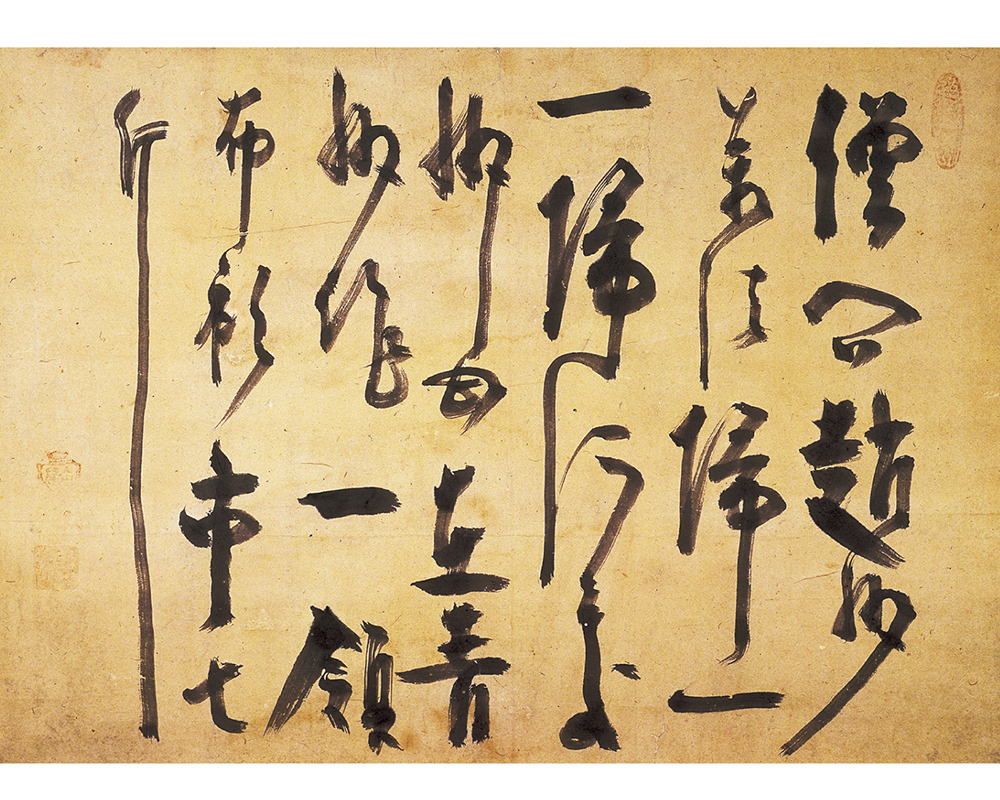 僧問趙州
萬法歸一
一歸何處
州曰在青
州作一領
布衫重七
斤